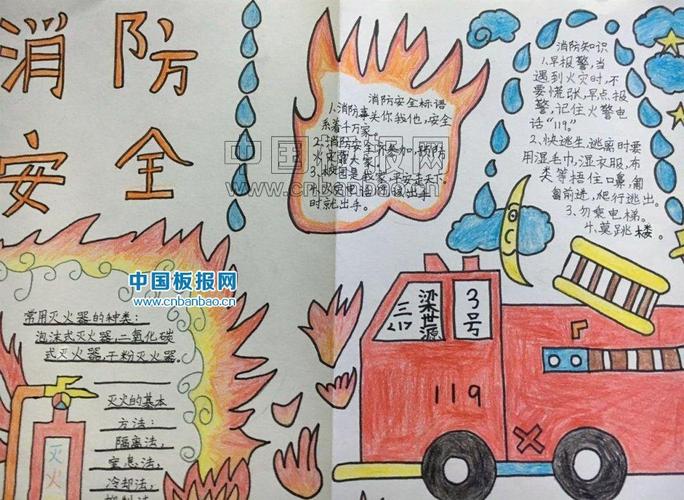 消防
安全
消防安全标语
1、消防事关你我他,安全
系着千万家。
2、消防安全
火灾靠大家
3、校园是我家,平安走天下。
时就出手。
消防知识
1、早报警,当
遇到火灾时,不
要慌张,早点报
警,记住火警电
话"119"。
2、快逃生,逃离时要
用湿毛巾,湿衣服,布
类等捂住口鼻,匍
匐前进,爬行逃出。
3、勿乘电梯。
4、莫跳楼。
中国板报网
www.cnbanbao.cn
常用灭火器的种类:
泡沫式灭火器,二氧化碳
式灭火器,干粉灭火器。
灭火的基本
方法:
隔离法,
窒息法,
冷却法,
灭火
三
217
梁世源
3号
119